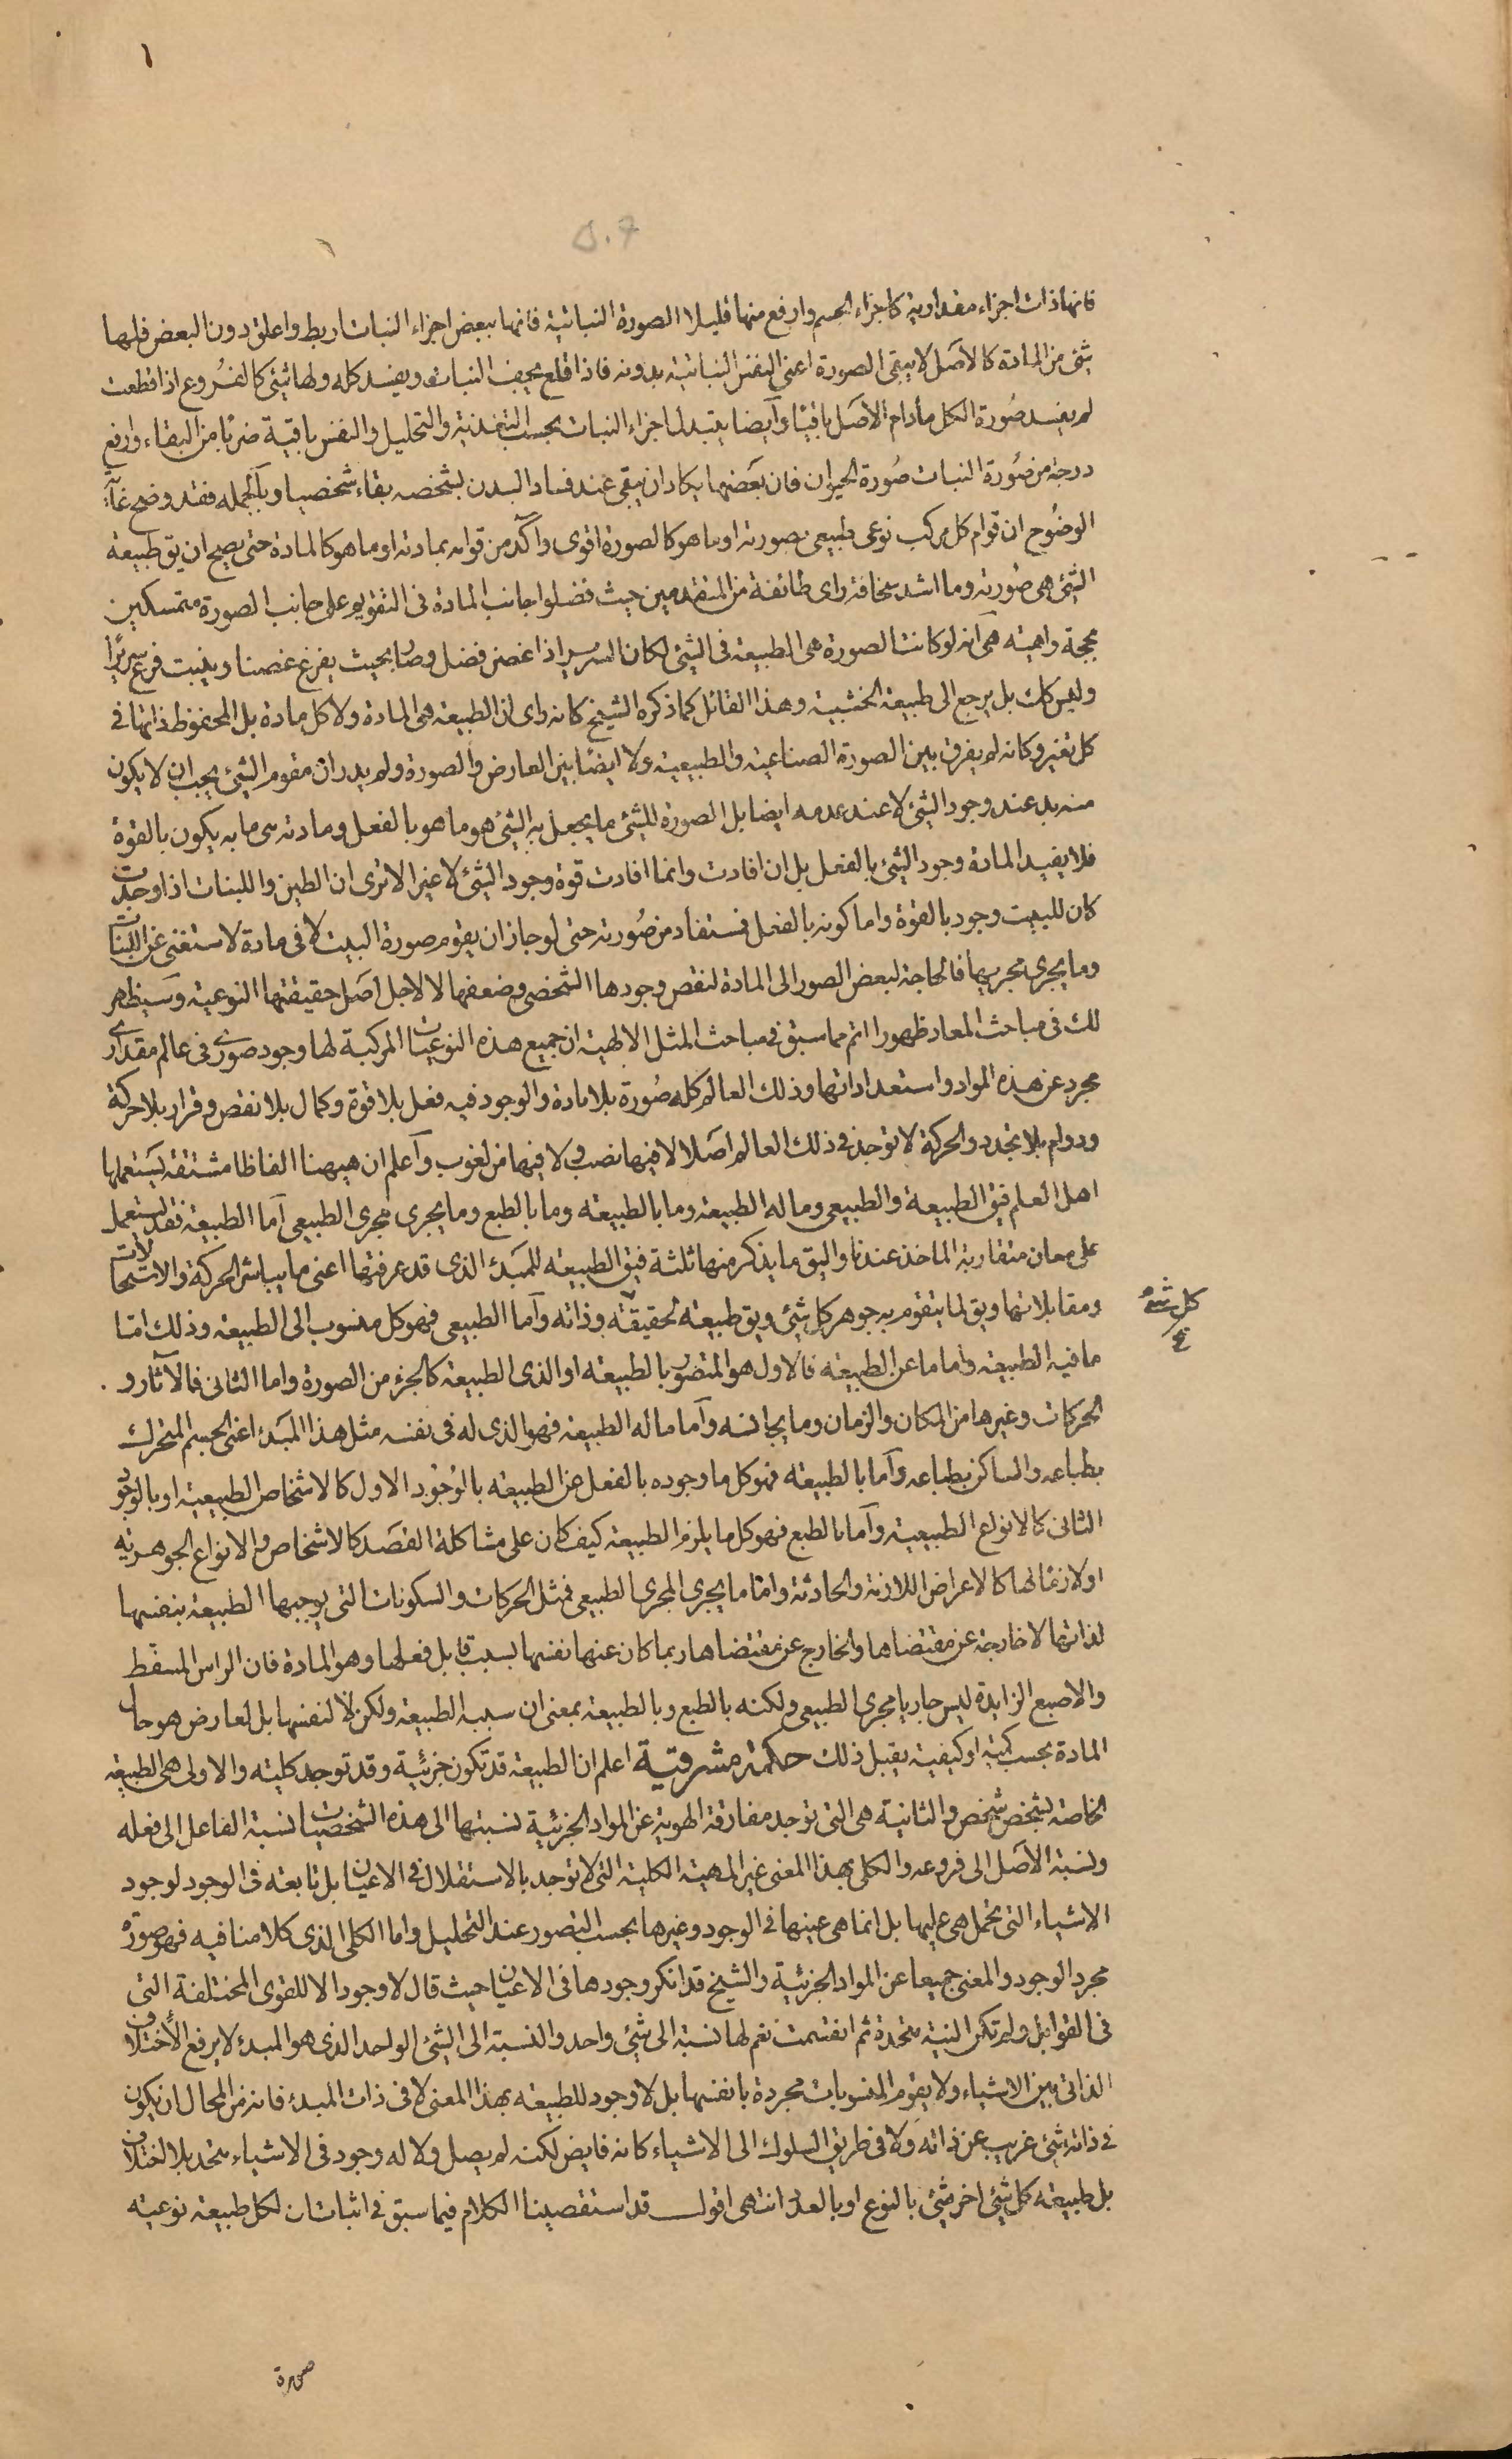 ١
٥٠٦
فانها ذات اجزاء مقدارية كاجزاء الجسم وارفع منها قليلا الصورة النباتية فانها ببعض اجزاء النبات اربط واعلق دون البعض فلها
شئ من المادة كالاصل لا يبقى الصورة اعنى النفس النباتية بدونه فاذا قلع يجف النبات ويفسد كله ولها شئ كالفروع اذا قطعت
لم يفسد صورة الكل مادام الاصل باقيا وايضا يتبدل اجزاء النبات بحسب التغذية والتحليل والنفس باقية ضربا من البقاء وارفع
درجة من صورة النبات صورة الحيوان فان بعضها يكاد ان يبقى عند فساد البدن بشخصه بقاء شخصيا وبالجمله فقد وضح غاية
الوضوح ان قوام كل مركب نوعى طبيعى بصورته او ما هو كالصورة اقوى وآكد من قوامه بمادته او ما هو كالمادة حتى يصح ان يق طبيعة
الشئ هى صورته وما اشد سخافة راى طائفة من المتقدمين حيث فضلوا جانب المادة فى التقويم على جانب الصورة متمسكين
بحجة واهية هى انه لو كانت الصورة هى الطبيعة فى الشئ لكان السرير اذا غصن فضل وصار بحيث يفرع غصنا وينبت فرع سريرا
وليس كك بل يرجع الى طبيعة الخشبية وهذا القائل كما ذكره الشيخ كانه راى ان الطبيعة هى المادة ولا كل مادة بل المحفوظ ذاتها فى
كل تغير وكانه لم يفرق بين الصورة الصناعية والطبيعية ولا ايضا بين العارض والصورة ولم يدر ان مقوم الشئ يجب ان لا يكون
منه بد عند وجود الشئ لا عند عدمه ايضا بل الصورة للشئ ما يجعل به الشئ هو ما هو بالفعل ومادته هى ما به يكون بالقوة
فلا يفيد المادة وجود الشئ بالفعل بل ان افادت وانما افادت قوة وجود الشئ لا غير الا ترى ان الطين واللبنات اذا وجدت
كان للبيت وجود بالقوة واما كونه بالفعل فستفاد من صورته حتى لو جاز ان يقوم صورة البيت لا فى مادة لاستغنى عن اللبنات
وما يجرى مجريها فالحاجة لبعض الصور الى المادة لنقص وجودها الشخصى وضعفها لا لاجل اصل حقيقتها النوعية وسيظهر
لك فى مباحث المعاد ظهورا اتم مما سبق فى مباحث المثل الالهية ان جميع هذه النوعيات المركبة لها وجود صورى فى عالم مقدارى
مجرد عن هذه المواد واستعداداتها وذلك العالم كله صورة بلا مادة والوجود فيه فعل بلا قوة وكمال بلا نقص وقرار بلا حركة
ودوام بلا تجدد والحركة لا توجد فى ذلك العالم اصلا لا فيها نصب ولا فيها من لغوب واعلم ان ههنا الفاظا مشتقة يستعملها
اهل العلم فيق الطبيعة والطبيعى وماله الطبيعة وما بالطبيعة وما بالطبع وما يجرى مجرى الطبيعى اما الطبيعة فقد يستعمل
على معان متقاربة الماخذ عندنا واليق ما يذكر منها ثلثة فيق الطبيعة للمبدء الذى قد عرفتها اعنى ما يباشر الحركة والاستحالات
ومقابلاتها ويق لما يتقوم به جوهر كل شئ ويق طبيعة لحقيقته وذاته واما الطبيعى فهو كل منسوب الى الطبيعة وذلك اما
كل شئ
ما فيه الطبيعة واما ما عن الطبيعة فالاول هو المتصور بالطبيعة او الذى الطبيعة كالجزء من الصورة واما الثانى فالآثار و
الحركات وغيرها من المكان والزمان وما يجانسه واما ماله الطبيعة فهو الذى له فى نفسه مثل هذا المبدء اعنى الجسم المتحرك
بطباعه والساكن بطباعه واما بالطبيعة فهو كل ما وجوده بالفعل عن الطبيعة بالوجود الاول كالاشخاص الطبيعية او بالوجود
الثانى كالانواع الطبيعية واما بالطبع فهو كل ما يلزم الطبيعة كيف كان على مشاكلة القصد كالاشخاص والانواع الجوهرية
او لازما لها كالاعراض اللازمة والحادثة واما ما يجرى المجرى الطبيعى فمثل الحركات والسكونات التى يوجبها الطبيعة بنفسها
لذاتها لا خارجة عن مقتضاها والخارج عن مقتضاها ربما كان عنها نفسها بسبب قابل فعلها وهو المادة فان الراس المسفط
والاصبع الزايدة ليس جاريا مجرى الطبيعى ولكنه بالطبع وبالطبيعة بمعنى ان سببه الطبيعة ولكن لا لنفسها بل لعارض هو حال
المادة بحسب كمية او كيفية يقبل ذلك حكمة مشرقية اعلم ان الطبيعة قد تكون جزئية وقد توجد كلية والاولى هى الطبيعة
الخاصة بشخص شخص والثانية هى التى توجد مفارقة الهوية عن المواد الجزئية نسبتها الى هذه الشخصيات نسبة الفاعل الى فعله
ونسبة الاصل الى فروعه والكلى بهذا المعنى غير المهية الكلية التى لا توجد بالاستقلال فى الاعيان بل تابعة فى الوجود لوجود
الاشياء التى تحمل هى عليها بل انما هى عينها فى الوجود وغيرها بحسب التصور عند التحليل واما الكلى الذى كلامنا فيه فهو صورة
مجرد الوجود والمعنى جميعا عن المواد الجزئية والشيخ قد انكر وجودها فى الاعيان حيث قال لا وجود الا للقوى المختلفة التى
فى القوابل ولم تكن البتة متحدة ثم انقسمت نعم لها نسبة الى شئ واحد والنسبة الى الشئ الواحد الذى هو المبدء لا يرفع الاختلاف
الذاتى بين الاشياء ولا يقوم المنسوبات مجردة بانفسها بل لا وجود للطبيعة بهذا المعنى لا فى ذات المبدء فانه من المحال ان يكون
فى ذاته شئ غريب عن ذاته ولا فى طريق السلوك الى الاشياء كانه فايض لكنه لم يصل ولا له وجود فى الاشياء متحد بلا اختلاف
بل طبيعة كل شئ اخر شئ بالنوع او بالعدد انتهى اقول قد استقصينا الكلام فيما سبق فى اثبات ان لكل طبيعة نوعية
صورة